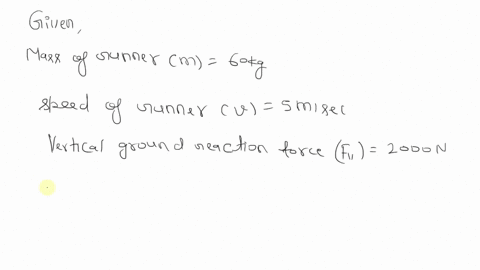 Given,
Mass of runner (m) = 60kg
speed of runner (v) = 5 m/sec
Vertical ground reaction force (Fv) = 2000N